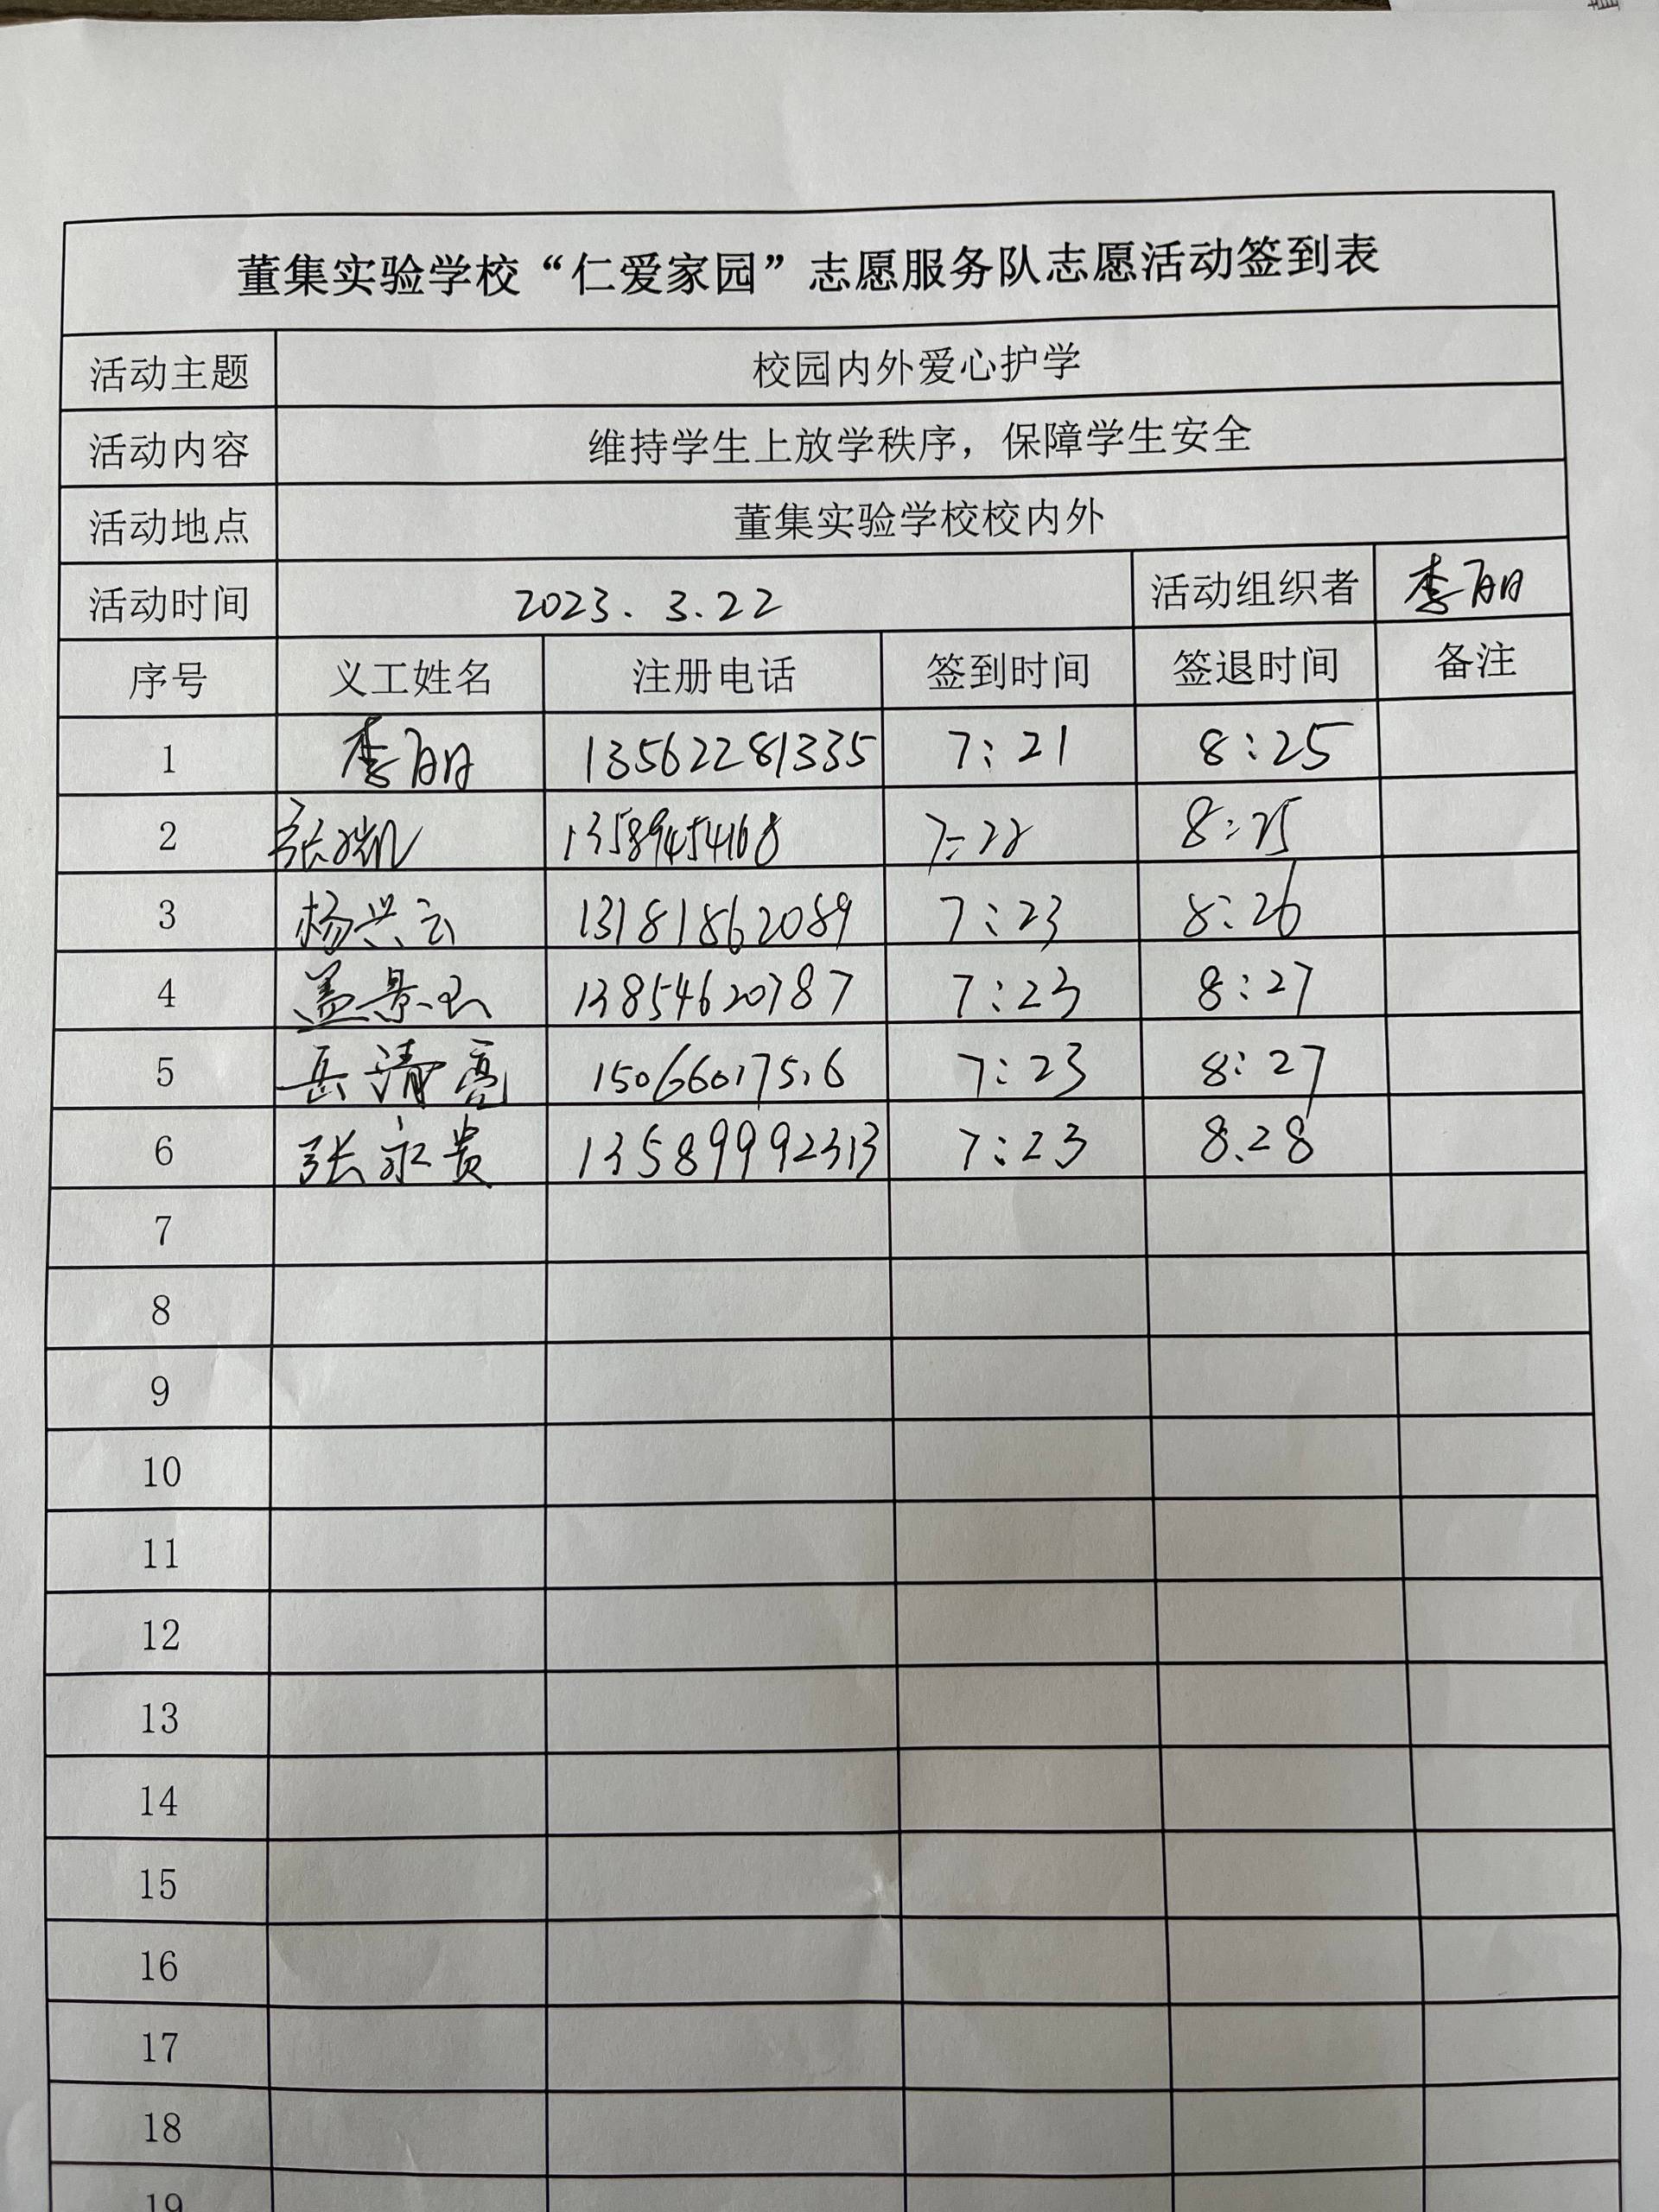 董集实验学校“仁爱家园”志愿服务队志愿活动签到表
活动主题 校园内外爱心护学
活动内容 维持学生上放学秩序，保障学生安全
活动地点 董集实验学校校内外
活动时间 2023.3.22 活动组织者 李丽
序号 义工姓名 注册电话 签到时间 签退时间 备注
1 李丽 13562281335 7:21 8:25
2 张瑞凯 13589454168 7:22 8:25
3 杨兴云 13181862089 7:23 8:26
4 盖景 13854620787 7:23 8:27
5 岳清亮 15066017516 7:23 8:27
6 张永贵 13589992313 7:23 8.28
7
8
9
10
11
12
13
14
15
16
17
18
19